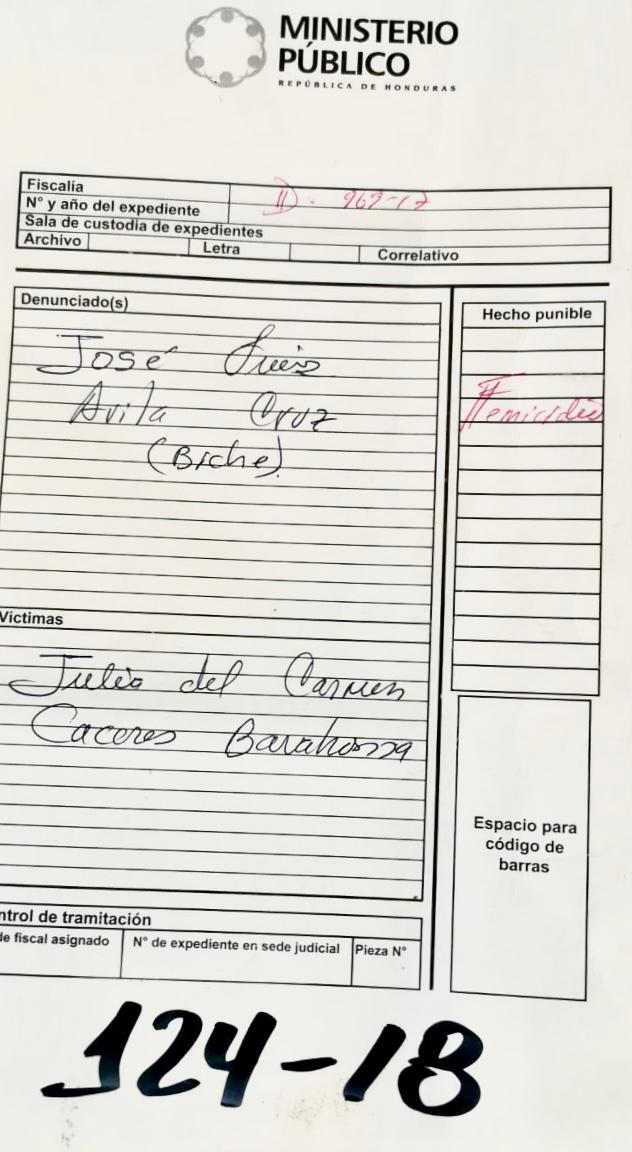 MINISTERIO
PÚBLICO
REPÚBLICA DE HONDURAS
Fiscalía
N° y año del expediente
D: 969-17
Sala de custodia de expedientes
Archivo Letra Correlativo
Denunciado(s)
José Luis
Avila Cruz
(Biche)
Hecho punible
Homicidio
Víctimas
Julio del Carmen
Caceres Barahona
Espacio para
código de
barras
ntrol de tramitación
de fiscal asignado N° de expediente en sede judicial Pieza N°
124-18